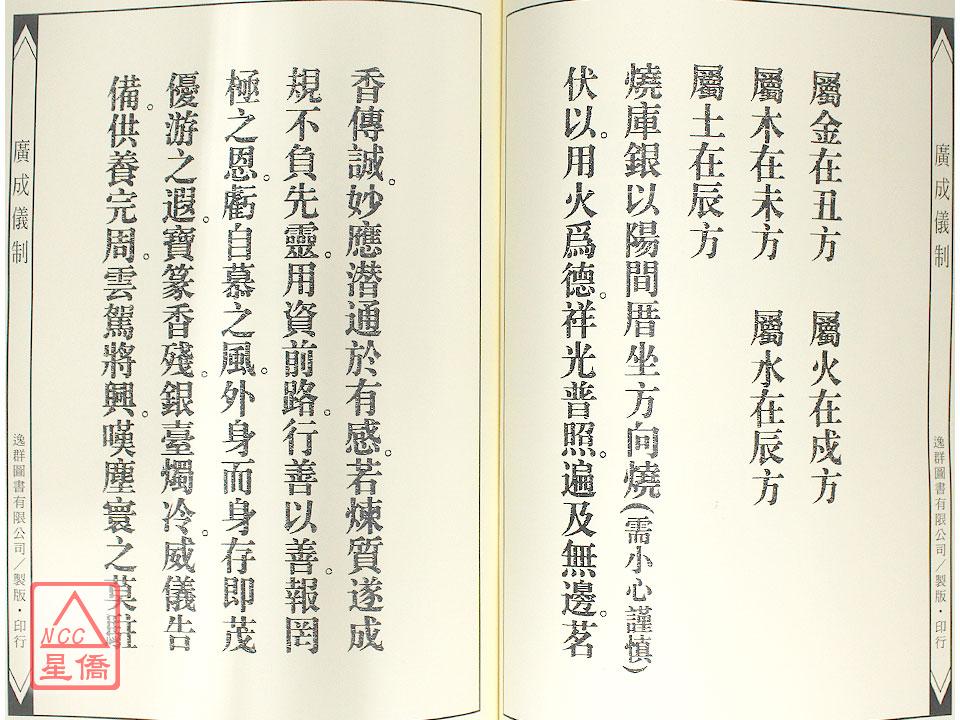 廣成儀制
逸群圖書有限公司／製版・印行
屬金在丑方　屬火在戍方
屬木在未方　屬水在辰方
屬土在辰方
燒庫銀以陽間厝坐方向燒(需小心謹慎)
伏以。用火爲德。祥光普照。遍及無邊。茗
香傳誠。妙應潜通於有感。若煉質遂成
規不負先靈。用資前路。行善以善。報罔
極之恩。虧自慕之風。外身而身存即茂
優游之遐。寶篆香殘。銀臺燭冷。威儀告
備。供養完周。雲駕將興。嘆塵寰之莫駐
廣成儀制
逸群圖書有限公司／製版・印行
NCC
星僑